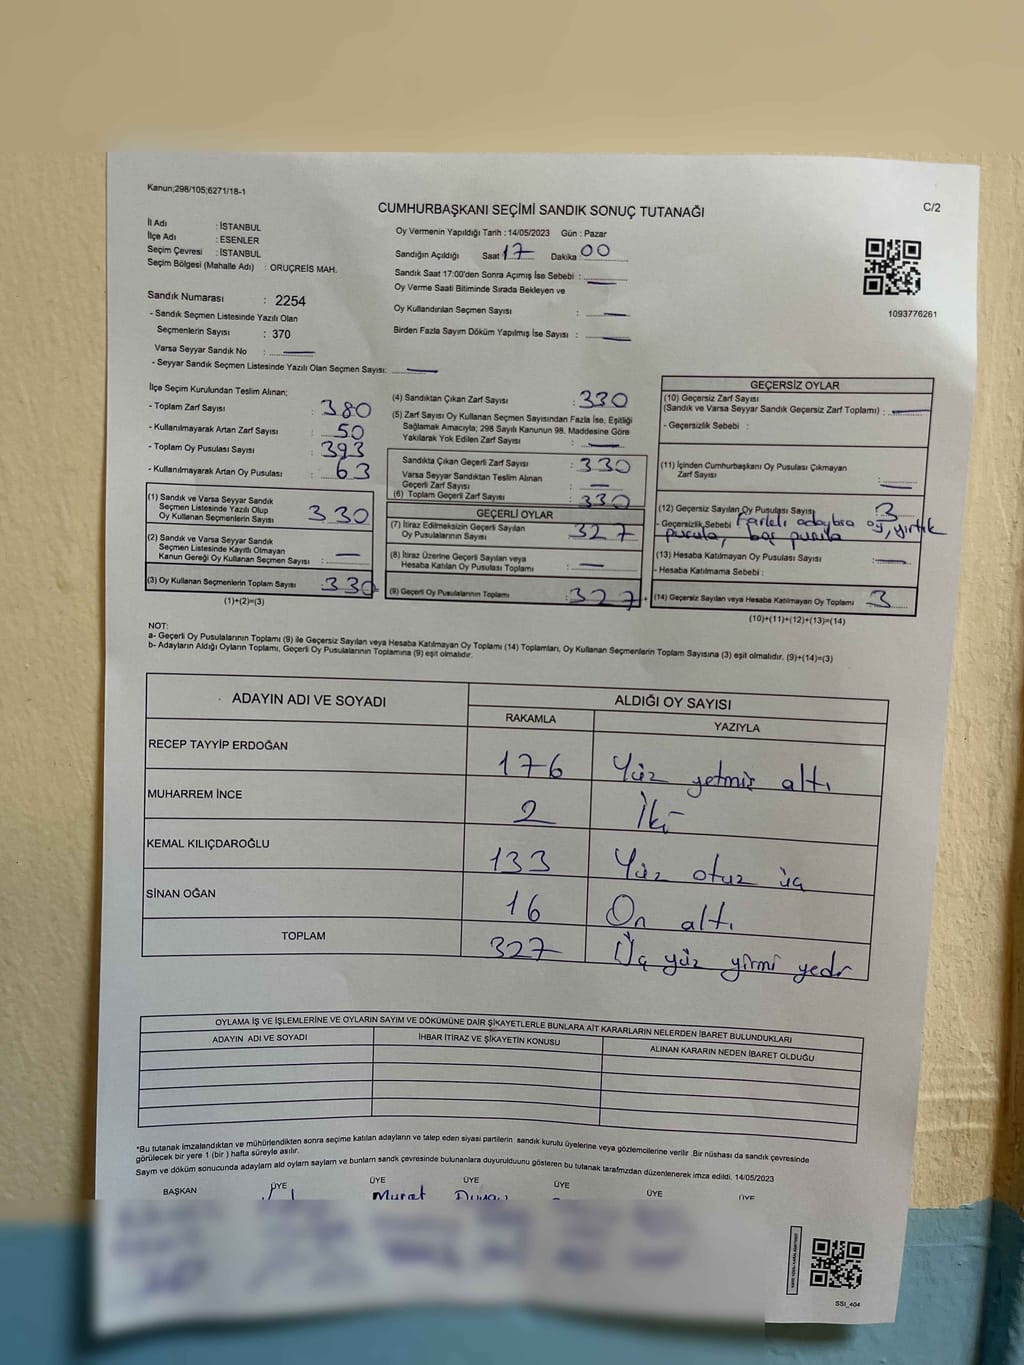 Kanun;298/105;6271/18-1
CUMHURBAŞKANI SEÇİMİ SANDIK SONUÇ TUTANAĞI
C/2
İl Adı : İSTANBUL
İlçe Adı : ESENLER
Seçim Çevresi : İSTANBUL
Seçim Bölgesi (Mahalle Adı) : ORUÇREİS MAH.
Sandık Numarası : 2254
- Sandık Seçmen Listesinde Yazılı Olan
Seçmenlerin Sayısı : 370
Varsa Seyyar Sandık No : —
- Seyyar Sandık Seçmen Listesinde Yazılı Olan Seçmen Sayısı: —
Oy Vermenin Yapıldığı Tarih : 14/05/2023 Gün : Pazar
Sandığın Açıldığı Saat 17 Dakika 00
Sandık Saat 17:00'den Sonra Açımış İse Sebebi : —
Oy Verme Saati Bitiminde Sırada Bekleyen ve
Oy Kullandırılan Seçmen Sayısı : —
Birden Fazla Sayım Döküm Yapılmış İse Sayısı : —
1093776261
İlçe Seçim Kurulundan Teslim Alınan;
- Toplam Zarf Sayısı : 380
- Kullanılmayarak Artan Zarf Sayısı : 50
- Toplam Oy Pusulası Sayısı : 393
- Kullanılmayarak Artan Oy Pusulası : 63
(1) Sandık ve Varsa Seyyar Sandık
Seçmen Listesinde Yazılı Olup
Oy Kullanan Seçmenlerin Sayısı : 330
(2) Sandık ve Varsa Seyyar Sandık
Seçmen Listesinde Kayıtlı Olmayan
Kanun Gereği Oy Kullanan Seçmen Sayısı : —
(3) Oy Kullanan Seçmenlerin Toplam Sayısı : 330=
(1)+(2)=(3)
(4) Sandıktan Çıkan Zarf Sayısı : 330
(5) Zarf Sayısı Oy Kullanan Seçmen Sayısından Fazla İse, Eşitliği
Sağlamak Amacıyla; 298 Sayılı Kanunun 98. Maddesine Göre
Yakılarak Yok Edilen Zarf Sayısı : —
Sandıkta Çıkan Geçerli Zarf Sayısı : 330
Varsa Seyyar Sandıktan Teslim Alınan
Geçerli Zarf Sayısı : —
(6) Toplam Geçerli Zarf Sayısı : 330
GEÇERLİ OYLAR
(7) İtiraz Edilmeksizin Geçerli Sayılan
Oy Pusulalarının Sayısı : 327
(8) İtiraz Üzerine Geçerli Sayılan veya
Hesaba Katılan Oy Pusulası Toplamı : —
(9) Geçerli Oy Pusulalarının Toplamı : 327+
GEÇERSİZ OYLAR
(10) Geçersiz Zarf Sayısı
(Sandık ve Varsa Seyyar Sandık Geçersiz Zarf Toplamı) : —
- Geçersizlik Sebebi :
(11) İçinden Cumhurbaşkanı Oy Pusulası Çıkmayan
Zarf Sayısı : —
(12) Geçersiz Sayılan Oy Pusulası Sayısı : 3
- Geçersizlik Sebebi oy, yırtık
pusula, boş pusula
(13) Hesaba Katılmayan Oy Pusulası Sayısı : —
- Hesaba Katılmama Sebebi :
(14) Geçersiz Sayılan veya Hesaba Katılmayan Oy Toplamı : 3
(10)+(11)+(12)+(13)=(14)
NOT:
a- Geçerli Oy Pusulalarının Toplamı (9) ile Geçersiz Sayılan veya Hesaba Katılmayan Oy Toplamı (14) Toplamları, Oy Kullanan Seçmenlerin Toplam Sayısına (3) eşit olmalıdır. (9)+(14)=(3)
b- Adayların Aldığı Oyların Toplamı, Geçerli Oy Pusulalarının Toplamına (9) eşit olmalıdır.
ADAYIN ADI VE SOYADI
ALDIĞI OY SAYISI
RAKAMLA YAZIYLA
RECEP TAYYİP ERDOĞAN 176 Yüz yetmiş altı
MUHARREM İNCE 2 İki
KEMAL KILIÇDAROĞLU 133 Yüz otuz üç
SİNAN OĞAN 16 On altı
TOPLAM 327 Üç yüz yirmi yedi
OYLAMA İŞ VE İŞLEMLERİNE VE OYLARIN SAYIM VE DÖKÜMÜNE DAİR ŞİKAYETLERLE BUNLARA AİT KARARLARIN NELERDEN İBARET BULUNDUKLARI
ADAYIN ADI VE SOYADI İHBAR İTİRAZ VE ŞİKAYETİN KONUSU ALINAN KARARIN NEDEN İBARET OLDUĞU
*Bu tutanak imzalandıktan ve mühürlendikten sonra seçime katılan adayların ve talep eden siyasi partilerin sandık kurulu üyelerine veya gözlemcilerine verilir .Bir nüshası da sandık çevresinde
görülecek bir yere 1 (bir ) hafta süreyle asılır.
Sayım ve döküm sonucunda adaylam ald oylarn sayları ve bunlarn sandk çevresinde bulunanlara duyurulduunu gösteren bu tutanak tarafmzdan düzenlenerek imza edildi. 14/05/2023
BAŞKAN ÜYE ÜYE ÜYE ÜYE ÜYE ÜYE
Murat
SSI_404